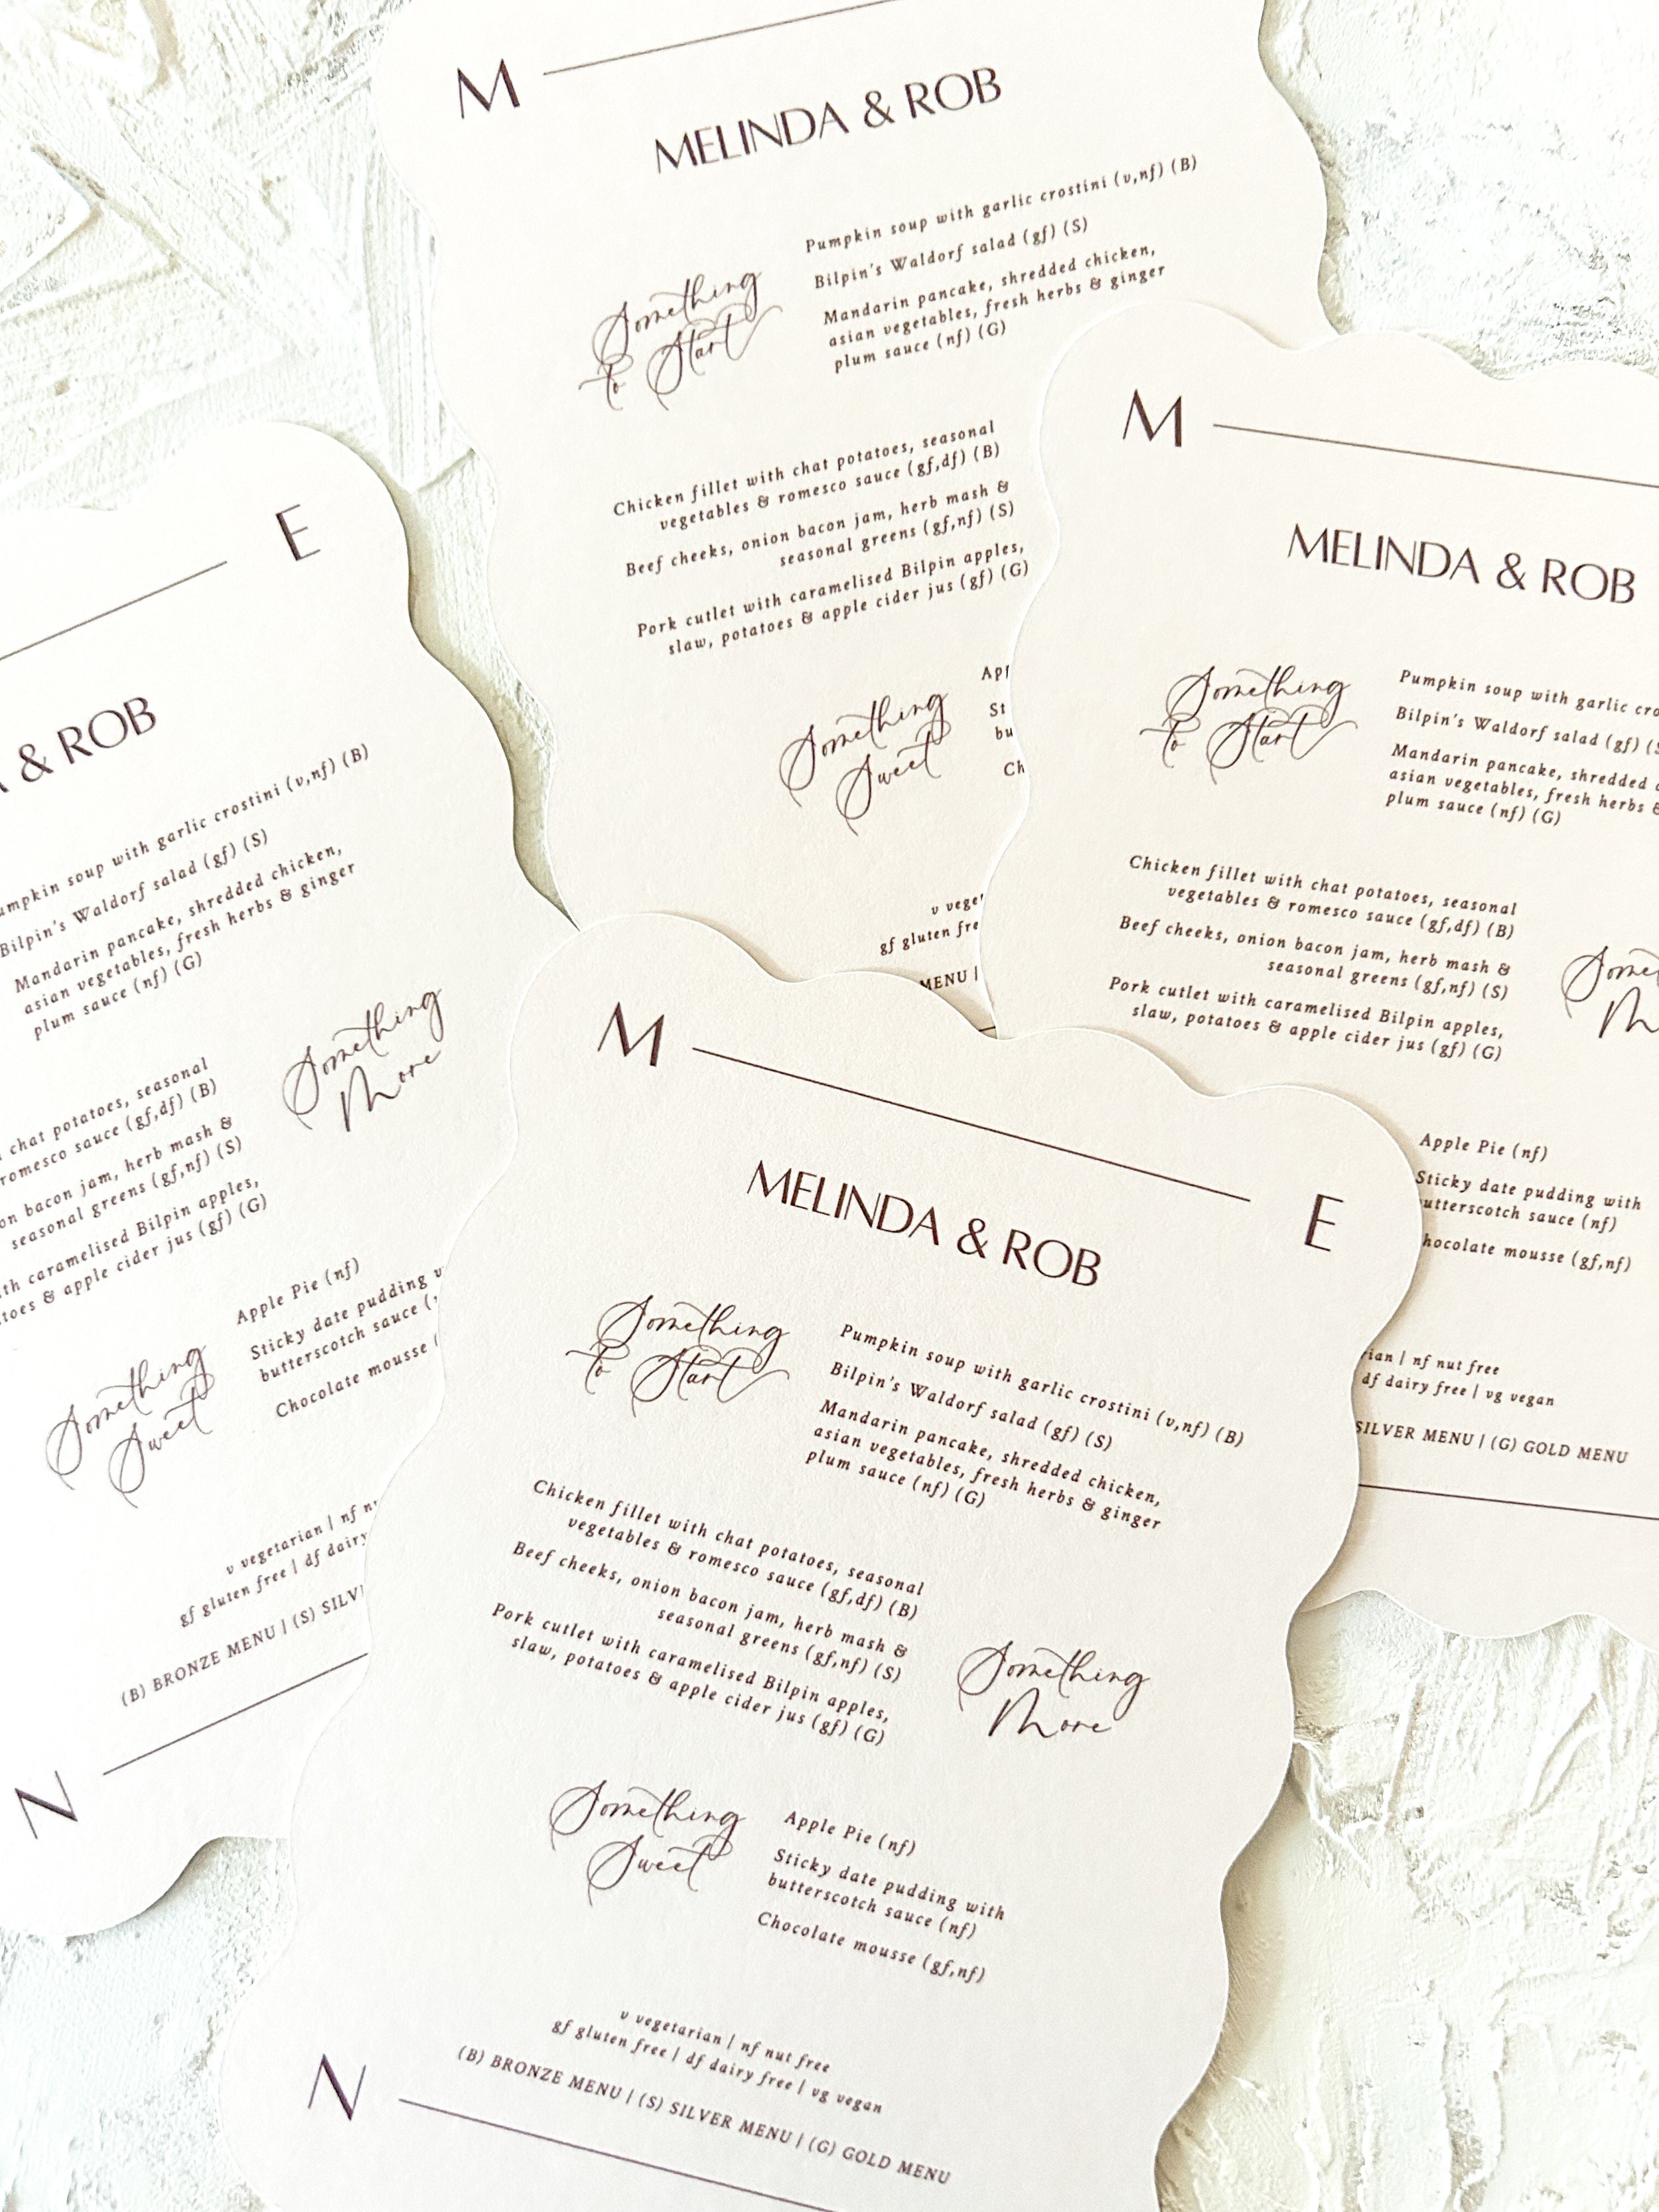 M
MELINDA & ROB
Something
to Start
Pumpkin soup with garlic crostini (v,nf) (B)
Bilpin's Waldorf salad (gf) (S)
Mandarin pancake, shredded chicken,
asian vegetables, fresh herbs & ginger
plum sauce (nf) (G)
Chicken fillet with chat potatoes, seasonal
vegetables & romesco sauce (gf,df) (B)
Beef cheeks, onion bacon jam, herb mash &
seasonal greens (gf,nf) (S)
Pork cutlet with caramelised Bilpin apples,
slaw, potatoes & apple cider jus (gf) (G)
Something
Sweet
St
Ch
v
gf gluten
MENU |
M
MELINDA & ROB
Something
to Start
Pumpkin soup with garlic
Bilpin's Waldorf salad (gf)
Mandarin pancake, shredded
asian vegetables, fresh herbs
plum sauce (nf) (G)
Chicken fillet with chat potatoes, seasonal
vegetables & romesco sauce (gf,df) (B)
Beef cheeks, onion bacon jam, herb mash &
seasonal greens (gf,nf) (S)
Pork cutlet with caramelised Bilpin apples,
slaw, potatoes & apple cider jus (gf) (G)
Apple Pie (nf)
Sticky date pudding with
sauce (nf)
mousse (gf,nf)
| nf nut free
df dairy free | vg vegan
SILVER MENU | (G) GOLD MENU
E
& ROB
soup with garlic crostini (v,nf) (B)
Bilpin's Waldorf salad (gf) (S)
Mandarin pancake, shredded chicken,
asian vegetables, fresh herbs & ginger
plum sauce (nf) (G)
chat potatoes, seasonal
romesco sauce (gf,df) (B)
bacon jam, herb mash &
seasonal greens (gf,nf) (S)
caramelised Bilpin apples,
& apple cider jus (gf) (G)
Something
More
Something
Sweet
Apple Pie (nf)
Sticky date pudding
butterscotch sauce
Chocolate mousse
v vegetarian | nf
gf gluten free | df dairy
(B) BRONZE MENU | (S)
N
M
E
MELINDA & ROB
Something
to Start
Pumpkin soup with garlic crostini (v,nf) (B)
Bilpin's Waldorf salad (gf) (S)
Mandarin pancake, shredded chicken,
asian vegetables, fresh herbs & ginger
plum sauce (nf) (G)
Chicken fillet with chat potatoes, seasonal
vegetables & romesco sauce (gf,df) (B)
Beef cheeks, onion bacon jam, herb mash &
seasonal greens (gf,nf) (S)
Pork cutlet with caramelised Bilpin apples,
slaw, potatoes & apple cider jus (gf) (G)
Something
More
Something
Sweet
Apple Pie (nf)
Sticky date pudding with
butterscotch sauce (nf)
Chocolate mousse (gf,nf)
v vegetarian | nf nut free
gf gluten free | df dairy free | vg vegan
(B) BRONZE MENU | (S) SILVER MENU | (G) GOLD MENU
N